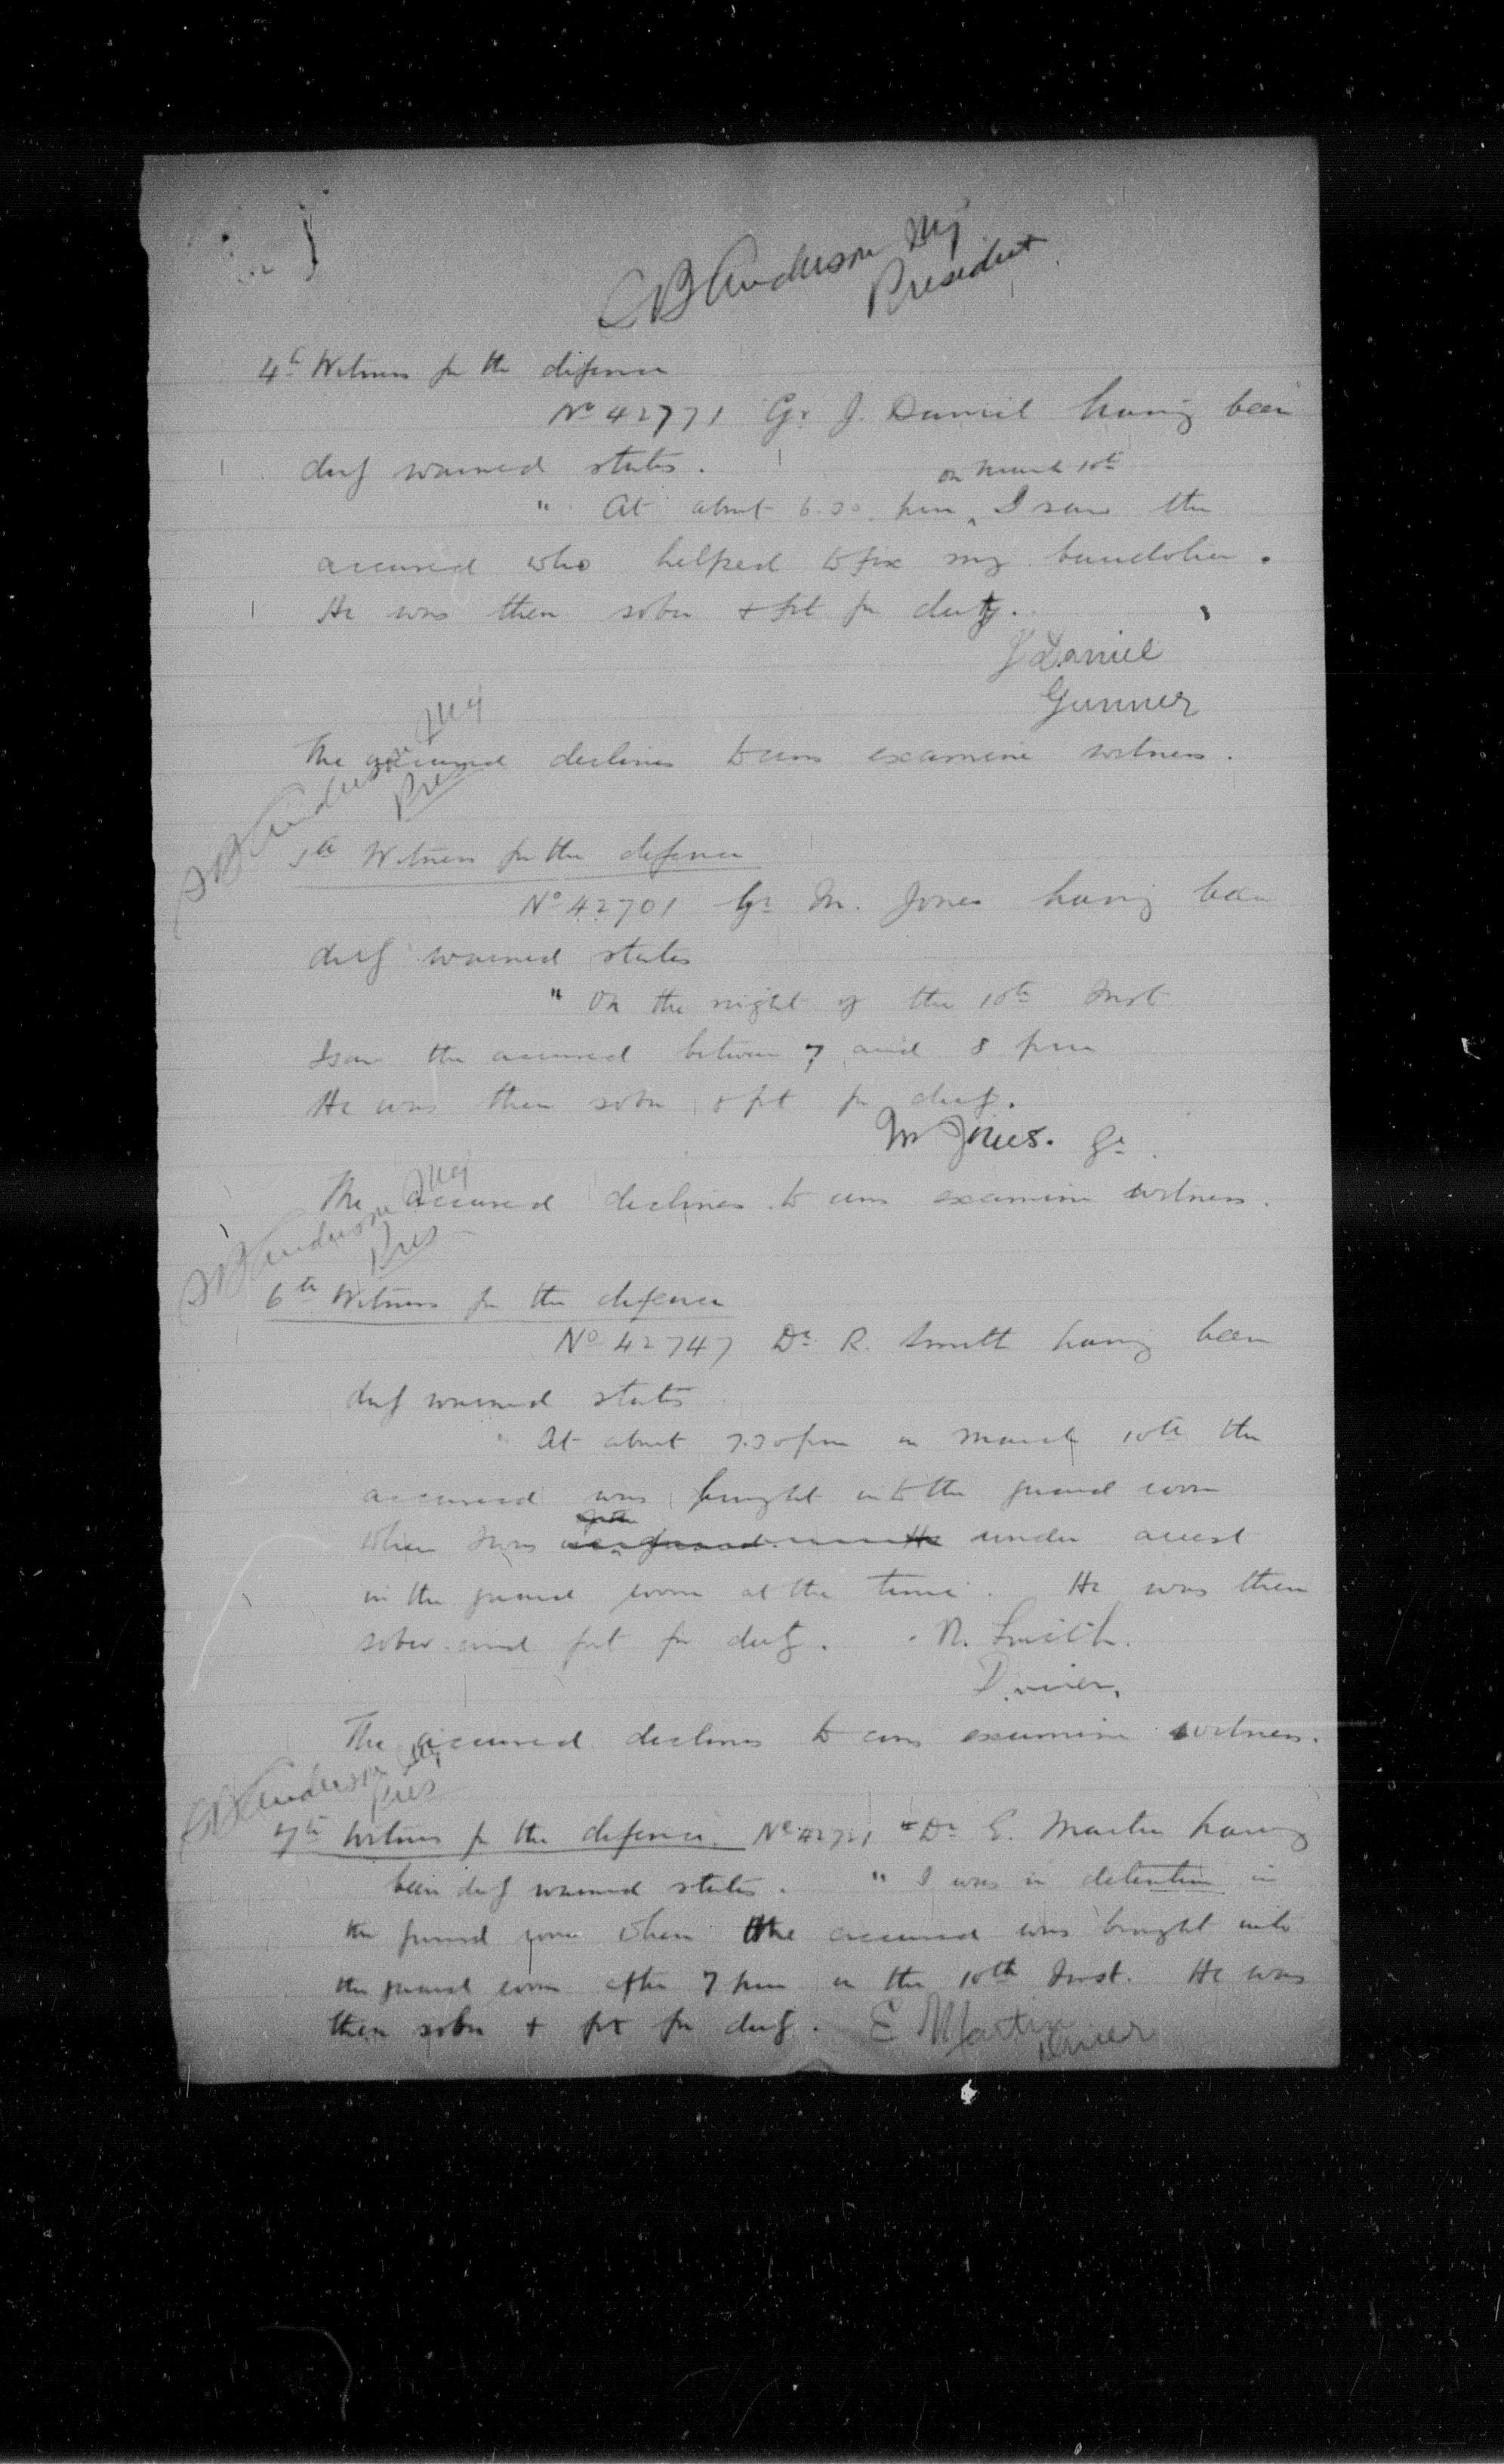 SB Anderson Maj
President
4th Witness for the defence
No 42771 Gr J. Daniel having been
duly warned states.
on March 10th
" At about 6.30 pm I saw the
accused who helped to fix my bandolier.
He was then sober & fit for duty.
J Daniel
Gunner
The accused declines to cross examine witness.
SB Anderson Maj
Pres
5th Witness for the defence
No 42701 Gr M. Jones having been
duly warned states
" On the night of the 10th Inst
I saw the accused between 7 and 8 pm
He was then sober & fit for duty.
M Jones. Gr.
The accused declines to cross examine witness.
SB Anderson Maj
Pres
6th Witness for the defence
No 42747 Dr R. Smith having been
duly warned states
" At about 7.30 pm on March 10th the
accused was brought into the guard room
when I was under arrest
in the guard room at the time. He was then
sober and fit for duty. R. Smith.
Driver.
The accused declines to cross examine witness.
SB Anderson Maj
Pres
7th Witness for the defence. No 42721 Dr E. Martin having
been duly warned states. " I was in detention in
the guard room when the accused was brought into
the guard room after 7 pm on the 10th Inst. He was
then sober & fit for duty. E Martin
Driver